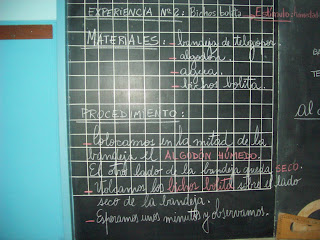 EXPERIENCIA Nº 2: Bichos bolita Estímulo: humedad
MATERIALES: - bandeja de telgopor.
- algodón.
- agua.
- bichos bolita.
PROCEDIMIENTO:
- Colocamos en la mitad de la
bandeja el ALGODÓN HÚMEDO.
El otro lado de la bandeja queda SECO.
- Volcamos los bichos bolita sobre el lado
seco de la bandeja.
- Esperamos unos minutos y observamos.
Al